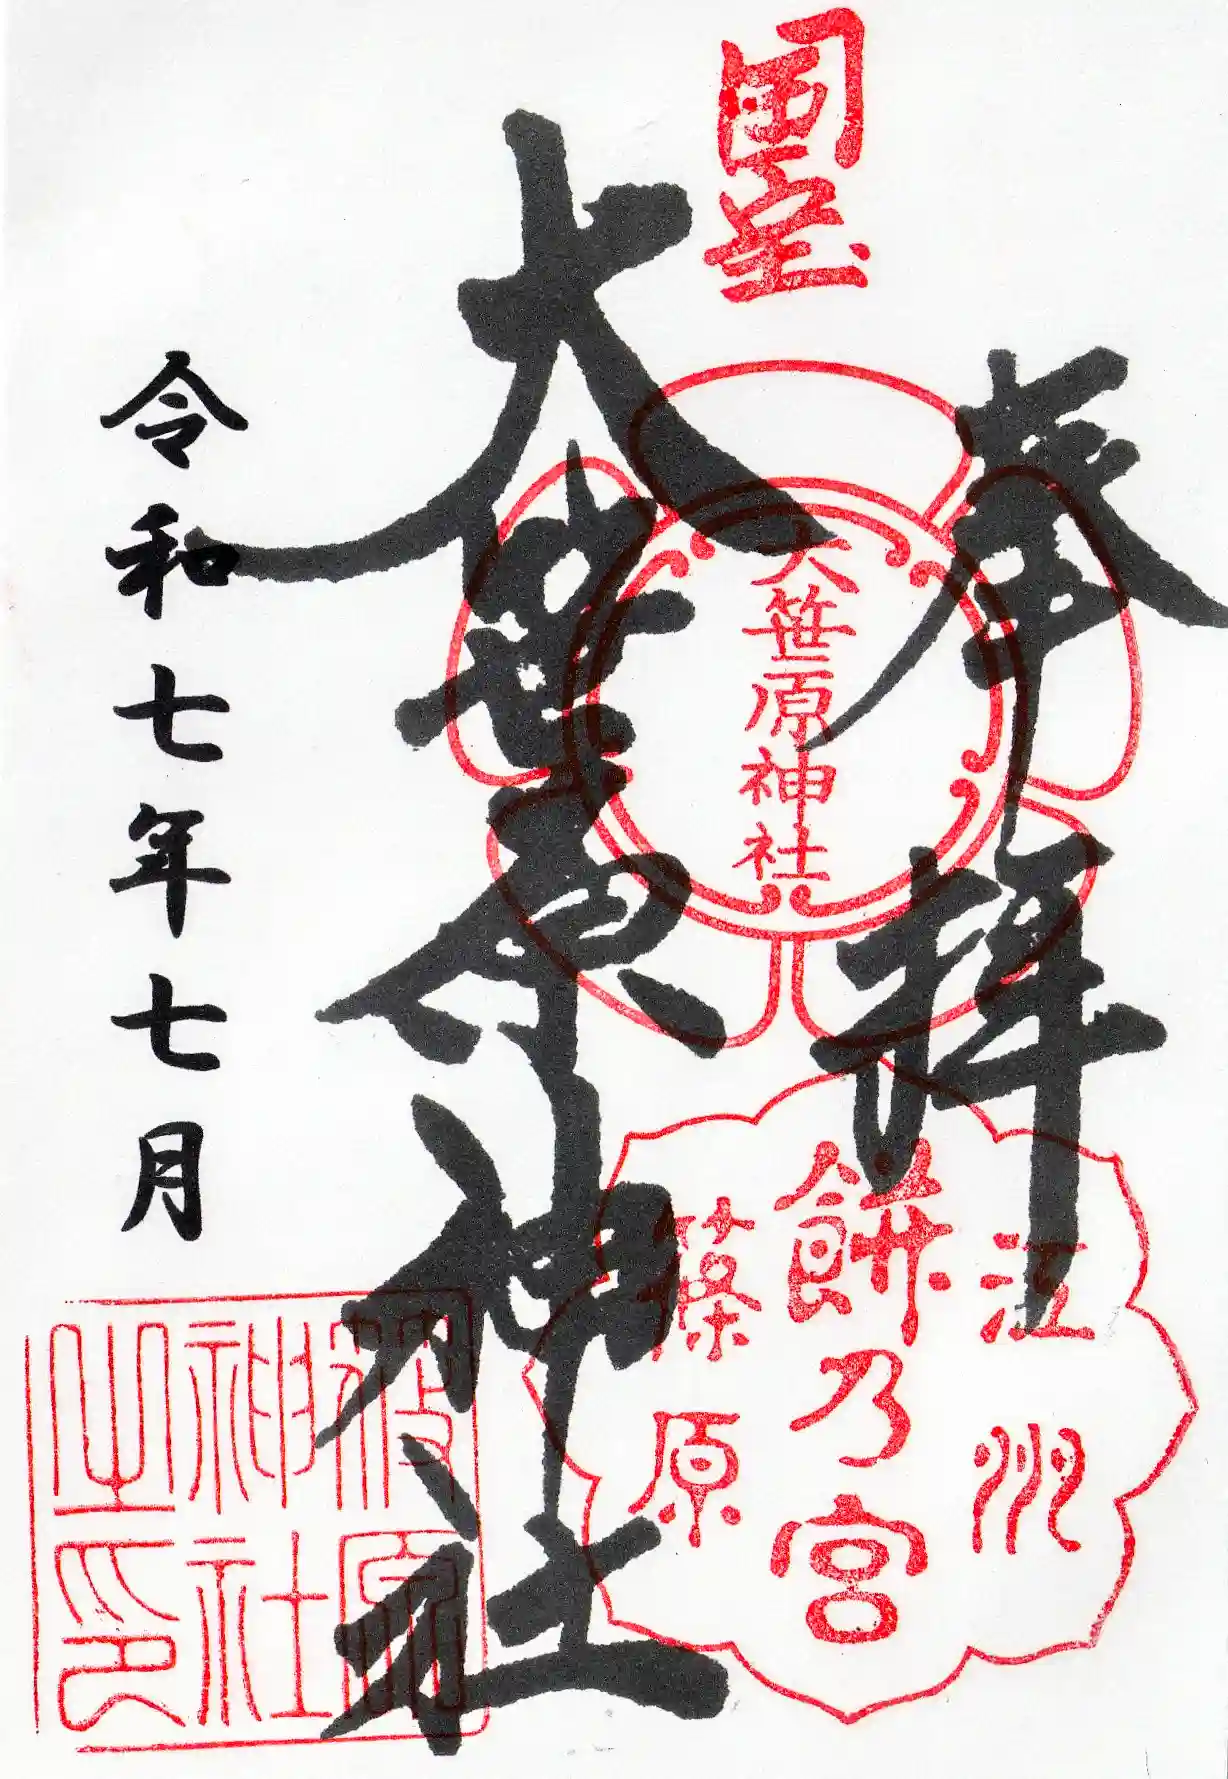 国宝
奉拝
大笹原神社
江州
餅乃宮
篠原
大笹原神社
令和七年七月
原
神社
之印